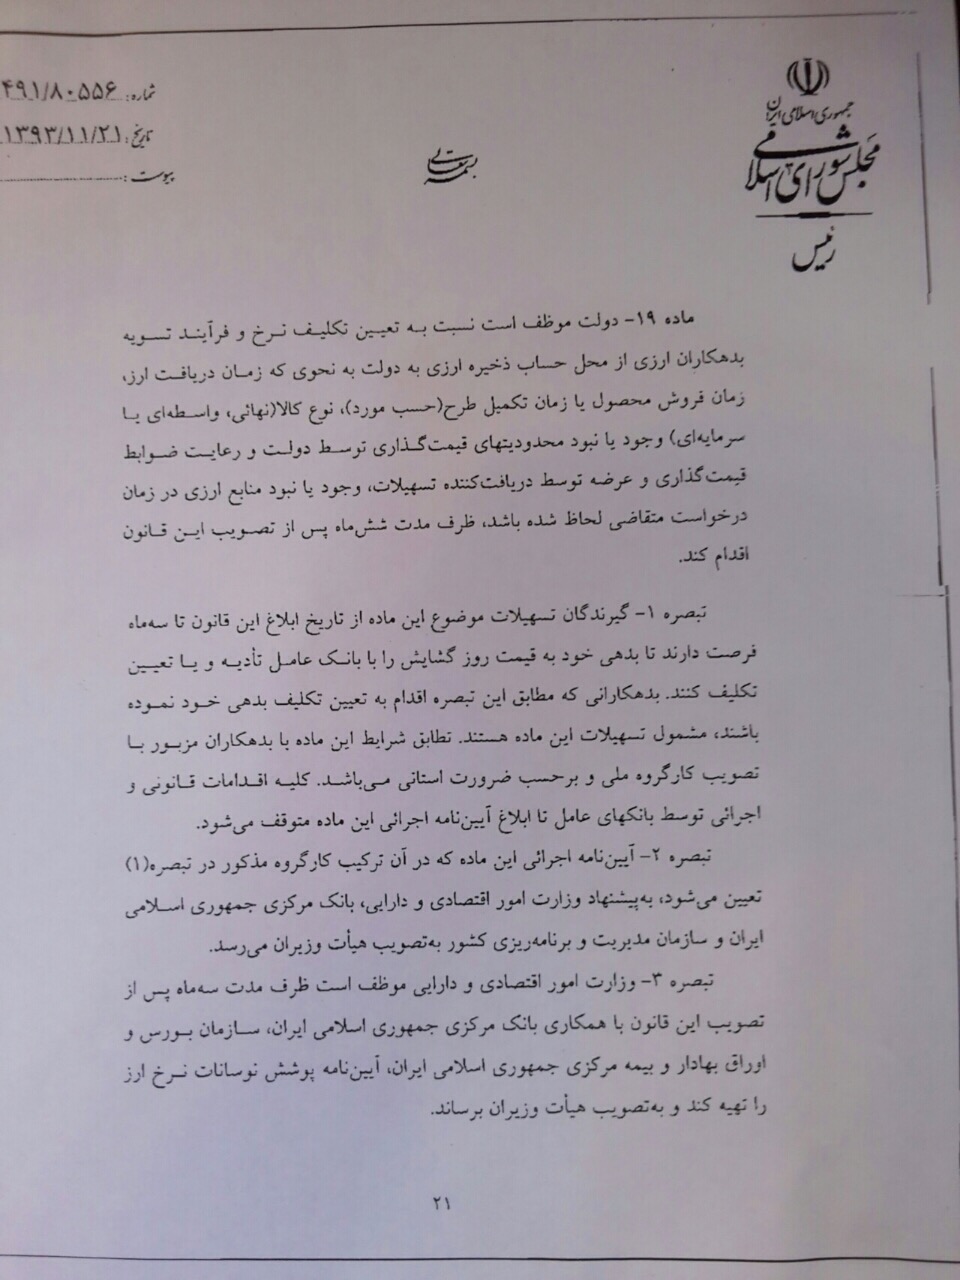 جمهوری اسلامی ایران
مجلس شورای اسلامی
رئیس
بسمه تعالی
شماره: ۴۹۱/۸۰۵۵۶
تاریخ: ۱۳۹۳/۱۱/۲۱
پیوست:
ماده ۱۹- دولت موظف است نسبت به تعیین تکلیف نرخ و فرآیند تسویه
بدهکاران ارزی از محل حساب ذخیره ارزی به دولت به نحوی که زمان دریافت ارز،
زمان فروش محصول یا زمان تکمیل طرح(حسب مورد)، نوع کالا(نهائی، واسطه‌ای یا
سرمایه‌ای) وجود یا نبود محدودیتهای قیمت‌گذاری توسط دولت و رعایت ضوابط
قیمت‌گذاری و عرضه توسط دریافت‌کننده تسهیلات، وجود یا نبود منابع ارزی در زمان
درخواست متقاضی لحاظ شده باشد، ظرف مدت شش‌ماه پس از تصویب این قانون
اقدام کند.
تبصره ۱- گیرندگان تسهیلات موضوع این ماده از تاریخ ابلاغ این قانون تا سه‌ماه
فرصت دارند تا بدهی خود به قیمت روز گشایش را با بانک عامل تأدیه و یا تعیین
تکلیف کنند. بدهکارانی که مطابق این تبصره اقدام به تعیین تکلیف بدهی خود نموده
باشند، مشمول تسهیلات این ماده هستند. تطابق شرایط این ماده با بدهکاران مزبور با
تصویب کارگروه ملی و برحسب ضرورت استانی می‌باشد. کلیه اقدامات قانونی و
اجرائی توسط بانکهای عامل تا ابلاغ آیین‌نامه اجرائی این ماده متوقف می‌شود.
تبصره ۲- آیین‌نامه اجرائی این ماده که در آن ترکیب کارگروه مذکور در تبصره(۱)
تعیین می‌شود، به‌پیشنهاد وزارت امور اقتصادی و دارایی، بانک مرکزی جمهوری اسلامی
ایران و سازمان مدیریت و برنامه‌ریزی کشور به‌تصویب هیأت وزیران می‌رسد.
تبصره ۳- وزارت امور اقتصادی و دارایی موظف است ظرف مدت سه‌ماه پس از
تصویب این قانون با همکاری بانک مرکزی جمهوری اسلامی ایران، سازمان بورس و
اوراق بهادار و بیمه مرکزی جمهوری اسلامی ایران، آیین‌نامه پوشش نوسانات نرخ ارز
را تهیه کند و به‌تصویب هیأت وزیران برساند.
۲۱